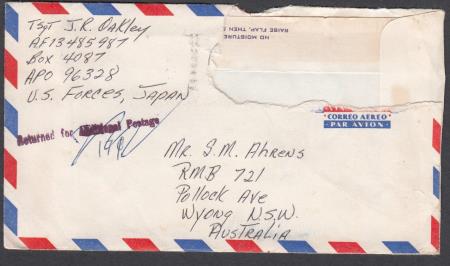 TSgt J.R. Oakley
AF13485987
Box 4087
APO 96328
U.S. FORCES, JAPAN
NO MOISTURE
RAISE FLAP, THEN
CORREO AEREO
PAR AVION
Returned for Additional Postage
Mr. S.M. Ahrens
RMB 721
Pollock Ave
Wyong N.S.W.
AUSTRALIA